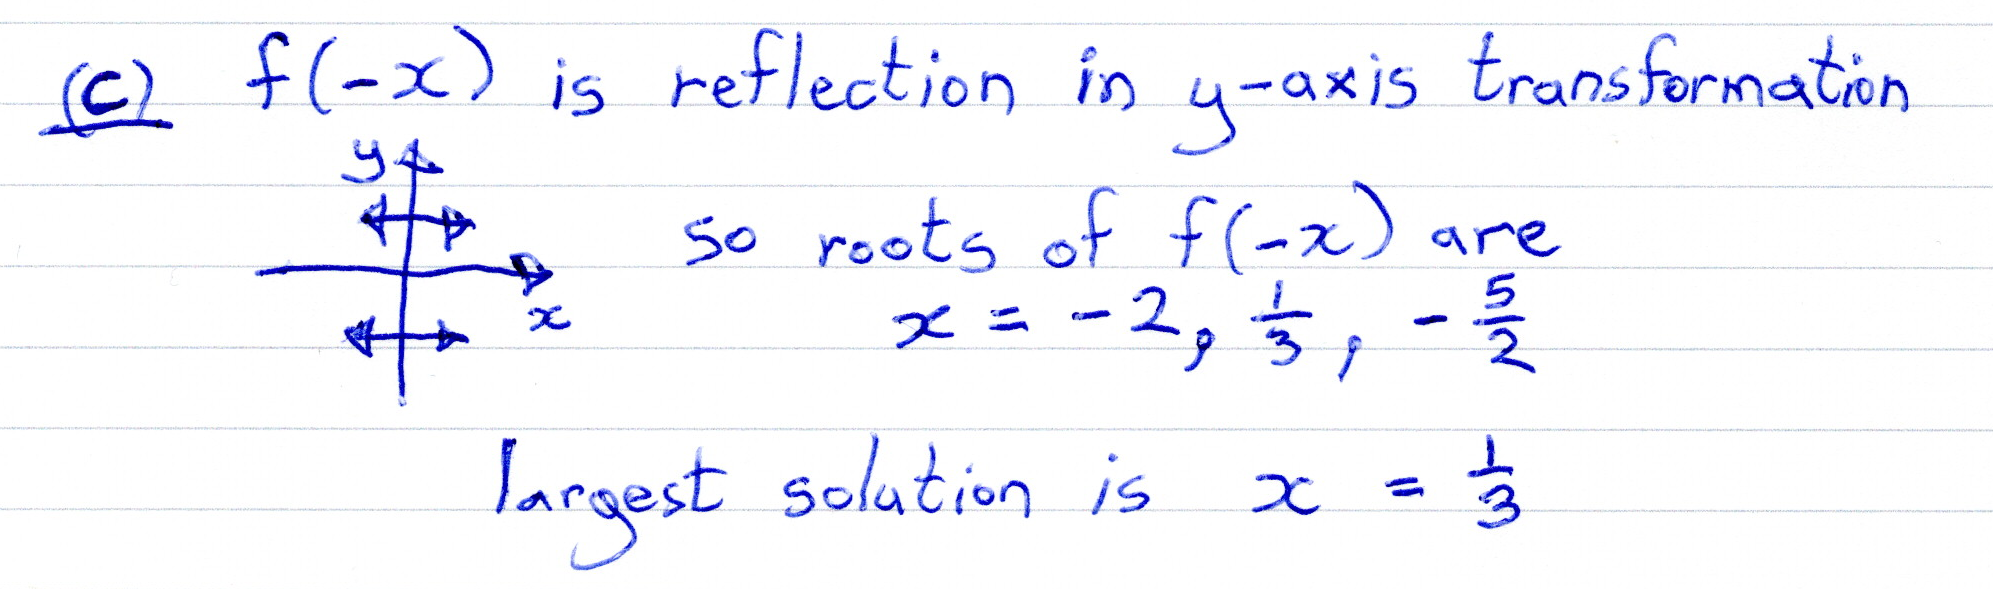 (c) f(-x) is reflection in y-axis transformation
y
x
so roots of f(-x) are
x = -2, 1/3, -5/2
largest solution is x = 1/3